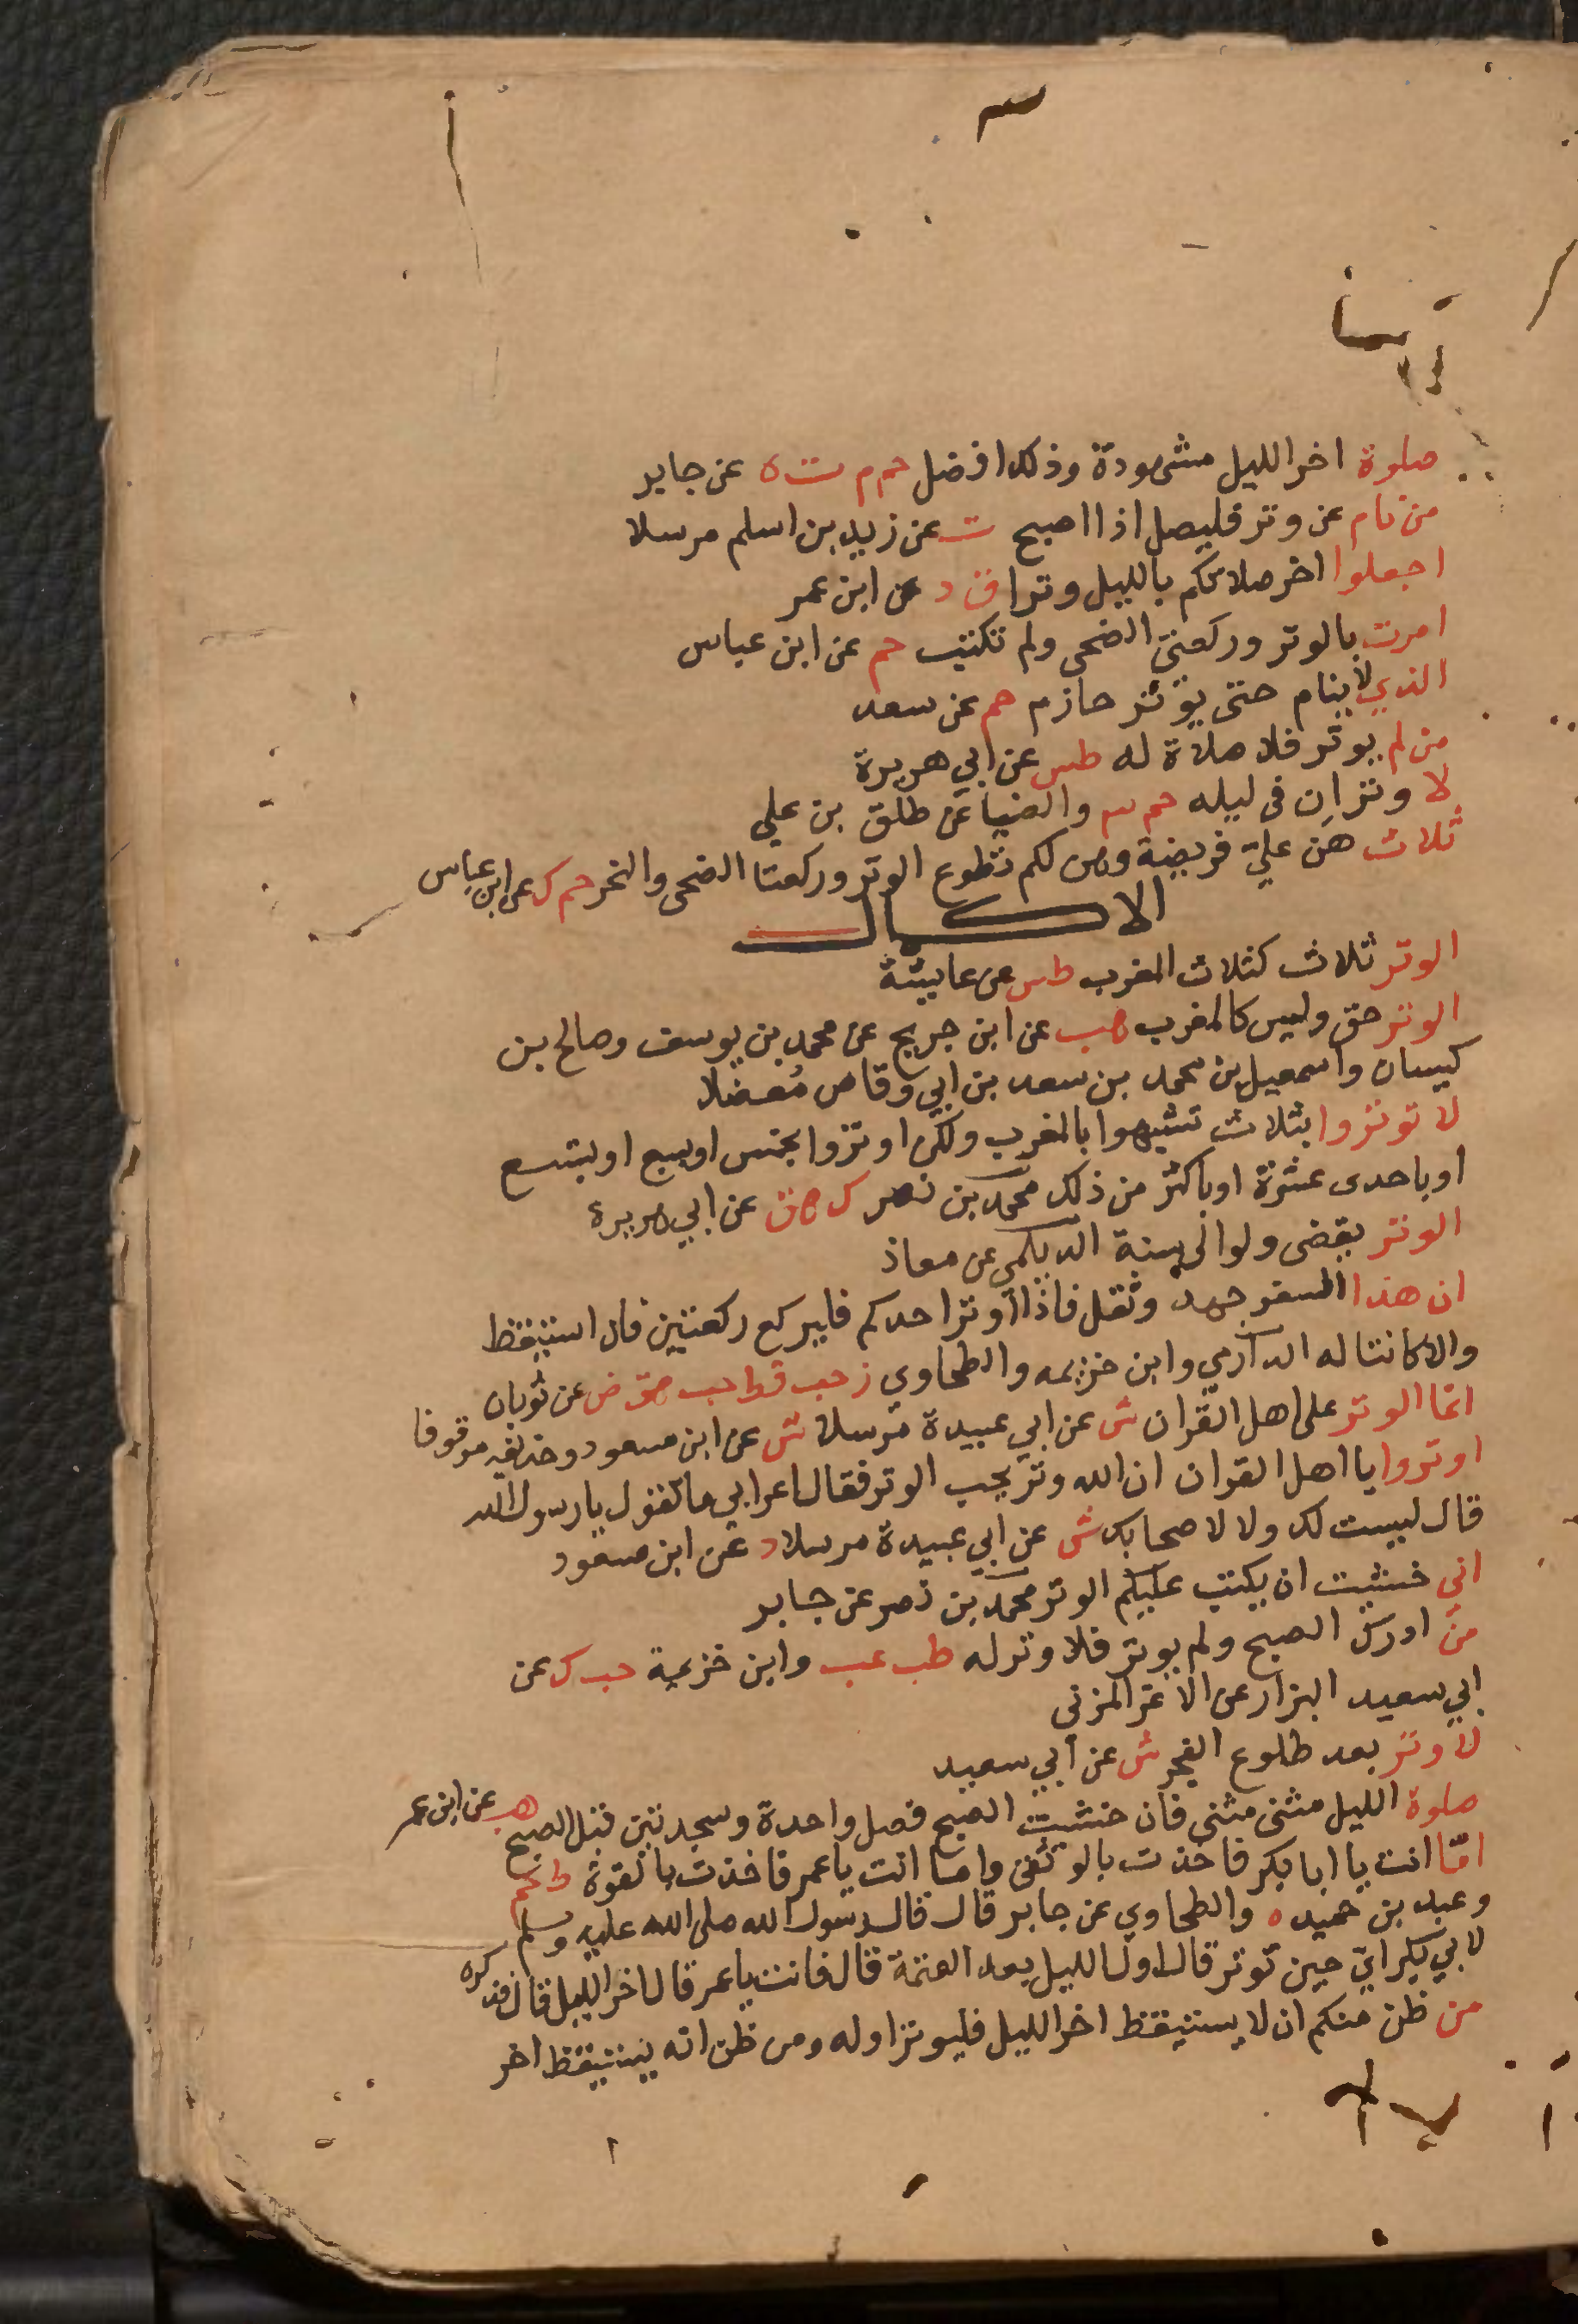 صلوة اخر الليل مشهودة وذلك افضل حم م ت ه عن جابر
من نام عن وتر فليصل اذا اصبح ت عن زيد بن اسلم مرسلا
اجعلوا اخر صلاتكم بالليل وترا ق د عن ابن عمر
امرت بالوتر وركعتي الضحى ولم تكتب حم عن ابن عباس
الذي لا ينام حتى يوتر حازم حم عن سعد
من لم يوتر فلا صلاة له طس عن ابي هريرة
لا وتران في ليله حم ٣ والضيا عن طلق بن علي
ثلاث هن علي فريضة وهن لكم تطوع الوتر وركعتا الضحى والنحر حم ك عن ابن عباس
الاكمال
الوتر ثلاث كثلاث المغرب طس عن عايشة
الوتر حق وليس كالمغرب هب عن ابن جريج عن محمد بن يوسف وصالح بن
كيسان واسمعيل بن محمد بن سعد بن ابي وقاص مُعضلا
لا توتروا بثلاث تشبهوا بالمغرب ولكن اوتروا بخمس او بسبع او بتسع
او باحدى عشرة او باكثر من ذلك محمد بن نصر ك هق عن ابي هريرة
الوتر يقضى ولو الى سنة الديلمي عن معاذ
ان هذا السفر جهد وثقل فاذا اوتر احدكم فليركع ركعتين فان استيقظ
والا كانتا له الدارمي وابن خزيمه والطحاوي ز حب قط حب هق ض عن ثوبان
انما الوتر على اهل القران ش عن ابي عبيدة مرسلا ش عن ابن مسعود وحذيفه موقوفا
اوتروا يا اهل القران ان الله وتر يحب الوتر فقال اعرابي ما تقول يا رسول الله
قال ليست لك ولا لاصحابك ش عن ابي عبيدة مرسلا د عن ابن مسعود
اني خشيت ان يكتب عليكم الوتر محمد بن نصر عن جابر
من ادرك الصبح ولم يوتر فلا وتر له طب عب وابن خزيمة حب ك عن
ابي سعيد البزار عن الاغر المزني
لا وتر بعد طلوع الفجر ش عن ابي سعيد
صلوة الليل مثنى مثنى فان خشيت الصبح فصل واحدة وسجدتين قبل الصبح هب عن ابن عمر
امّا انت يا ابا بكر فاخذت بالوثقى واما انت يا عمر فاخذت بالقوة ط حم
وعبد بن حميد ه والطحاوي عن جابر قال قال رسول الله صلى الله عليه وسلم
لابي بكر اي حين توتر قال اول الليل بعد العتمة قال فانت يا عمر قال اخر الليل قال فذكره
من ظن منكم ان لا يستيقظ اخر الليل فليوتر اوله ومن ظن انه يستيقظ اخر